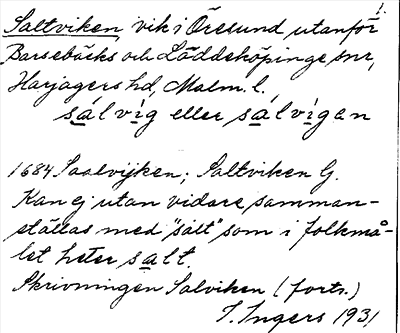 1.
Saltviken, vik i Öresund utanför
Barsebäcks och Löddeköpinge snr,
Harjagers hd, Malm. l.
sálvig eller sálvigen
1684 Saalvijken; Saltviken G.
Kan ej utan vidare samman-
ställas med "salt" som i folkmå-
let heter salt
Skrivningen Salviken (forts.)
I. Ingers 1931